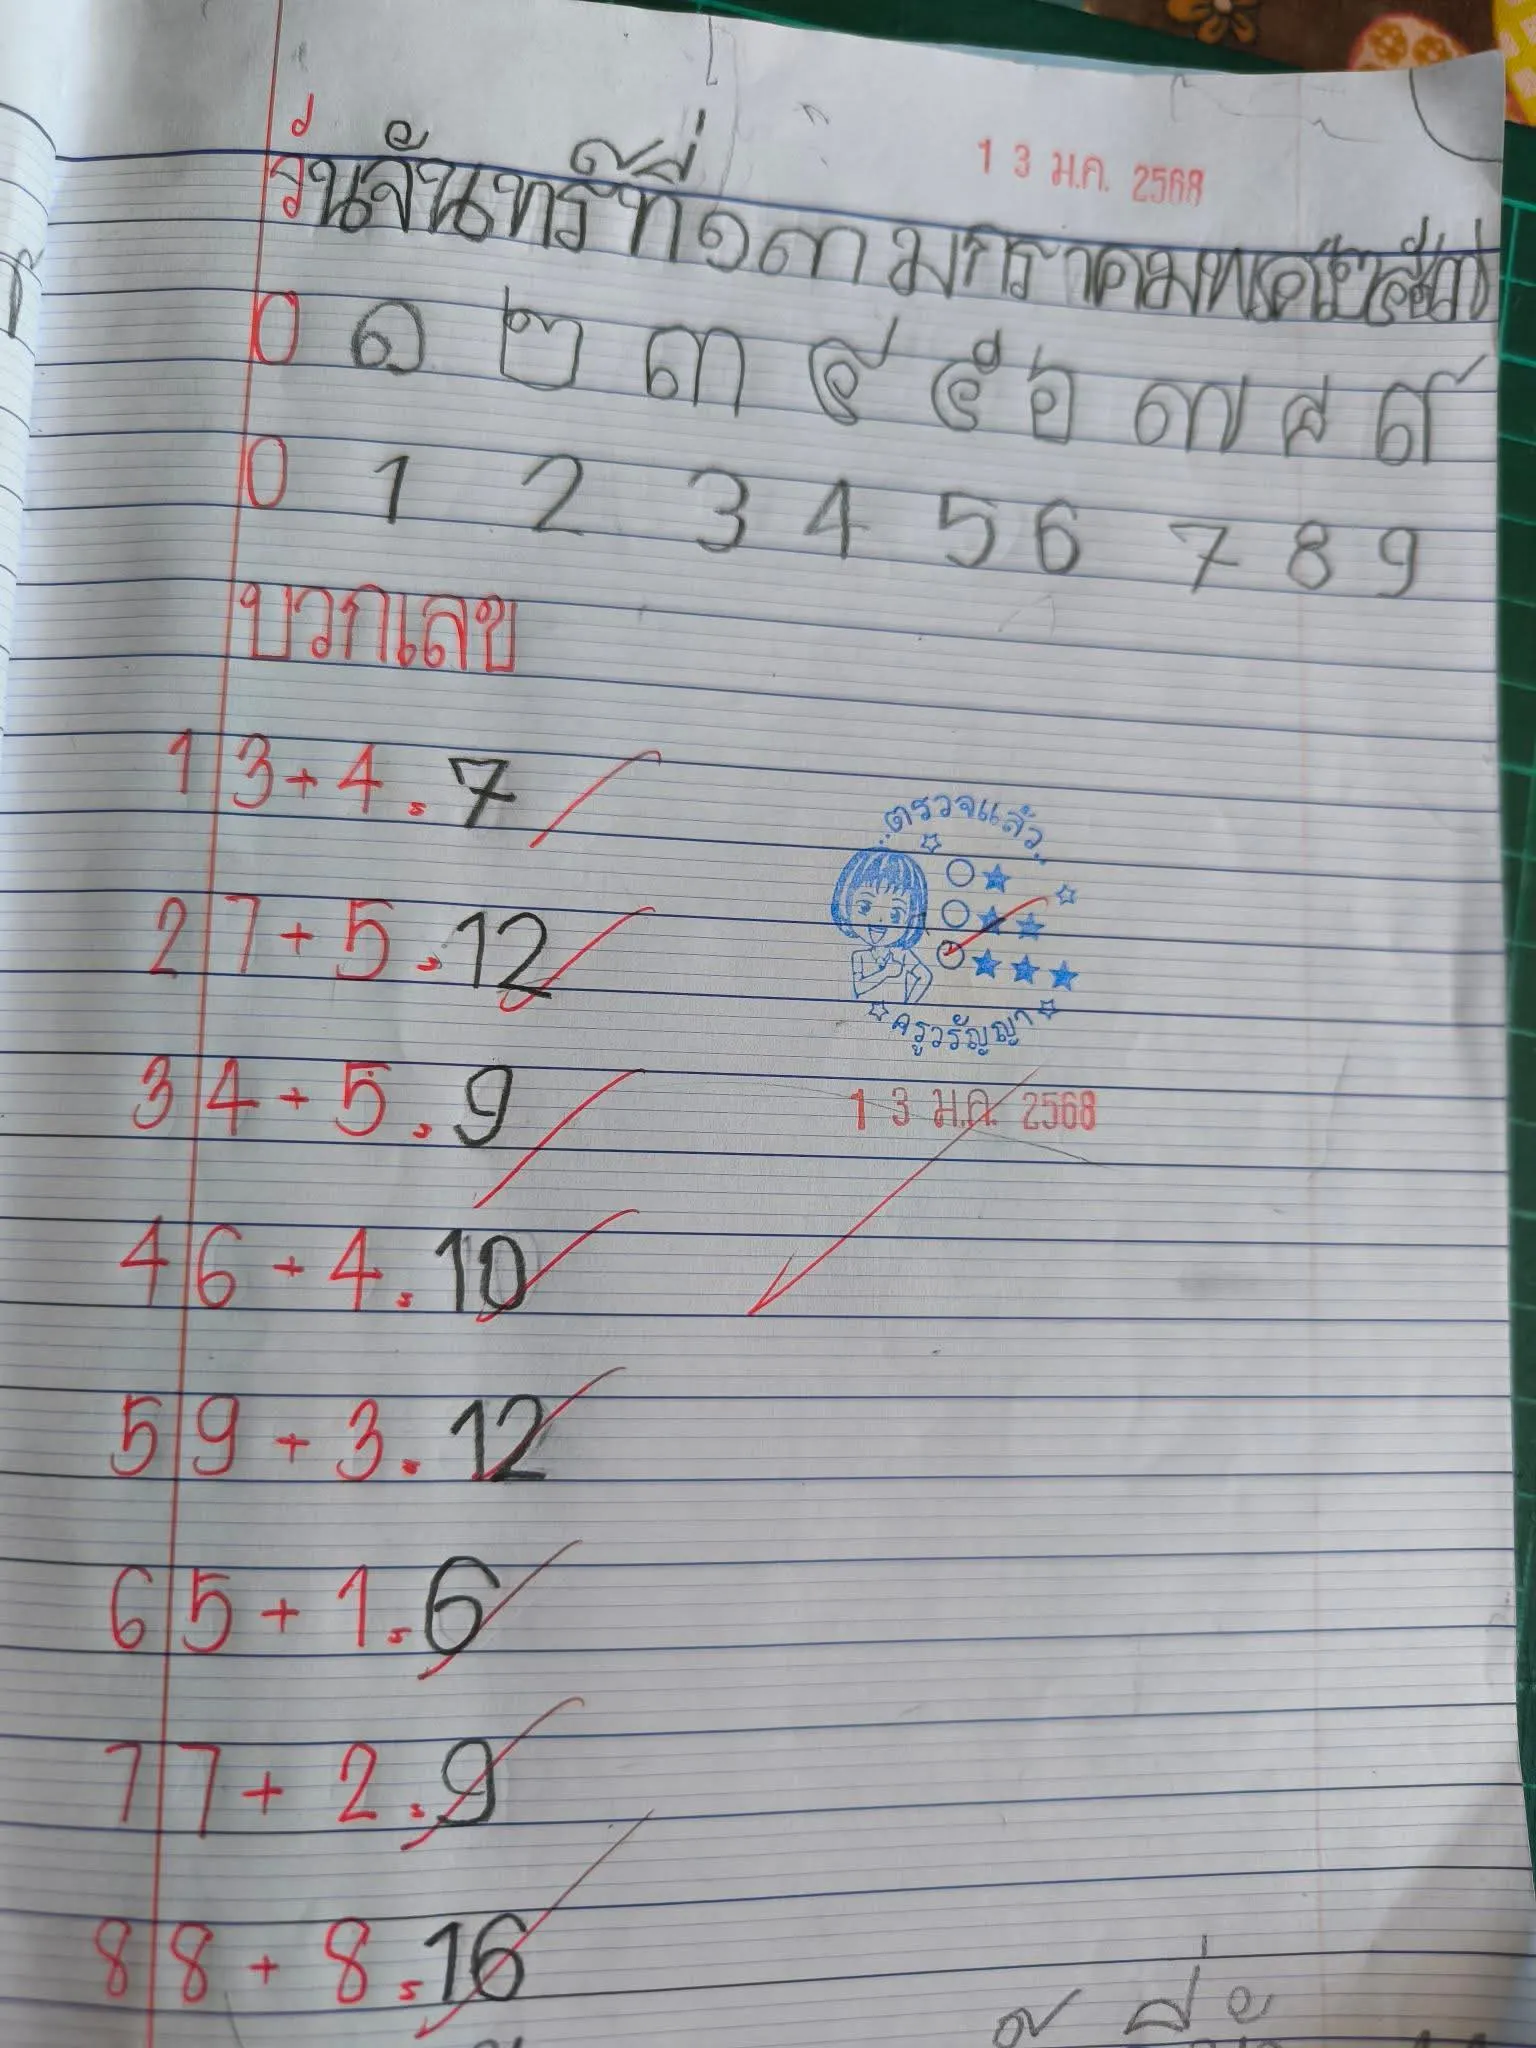 13 ม.ค. 2568
วันจันทร์ที่ ๑๓ มกราคม พ.ศ. ๒๕๖๘
0 ๑ ๒ ๓ ๔ ๕ ๖ ๗ ๘ ๙
0 1 2 3 4 5 6 7 8 9
บวกเลข
1 3 + 4 = 7
2 7 + 5 = 12
3 4 + 5 = 9
4 6 + 4 = 10
5 9 + 3 = 12
6 5 + 1 = 6
7 7 + 2 = 9
8 8 + 8 = 16
ตรวจแล้ว
ครูวรัญญา
13 ม.ค. 2568